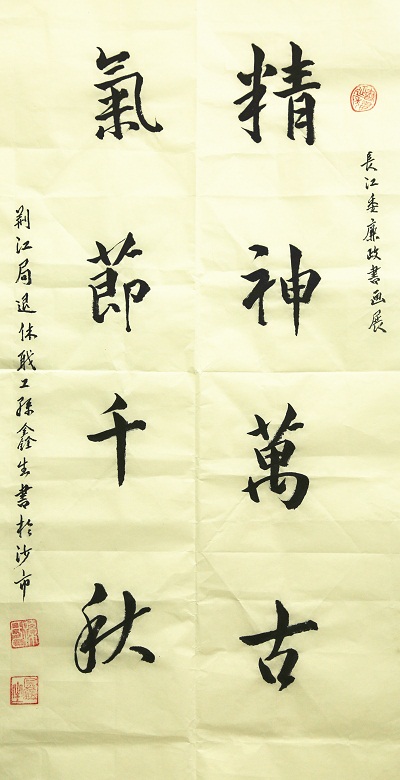 長江委廉政書画展
精神萬古
氣節千秋
荆江局退休職工孫鑫生書於沙市